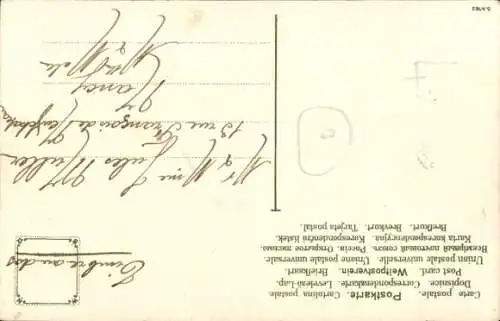 Carte postale. Postkarte. Cartolina postale
Dopisnice. Correspondenzkarte. Levelező-Lap.
Post card. Weltpostverein. Briefkaart.
Union postale universelle. Unione postale universale.
Всемірный почтовый союзъ. Россія. Открытое письмо.
Karta korespondencyjna. Korespondenční lístek.
Brefkort. Brevkort. Tarjeta postal.
Timbre au dos
Mr & Mme Jules Muller
13 rue François de Neufchâteau
Nancy